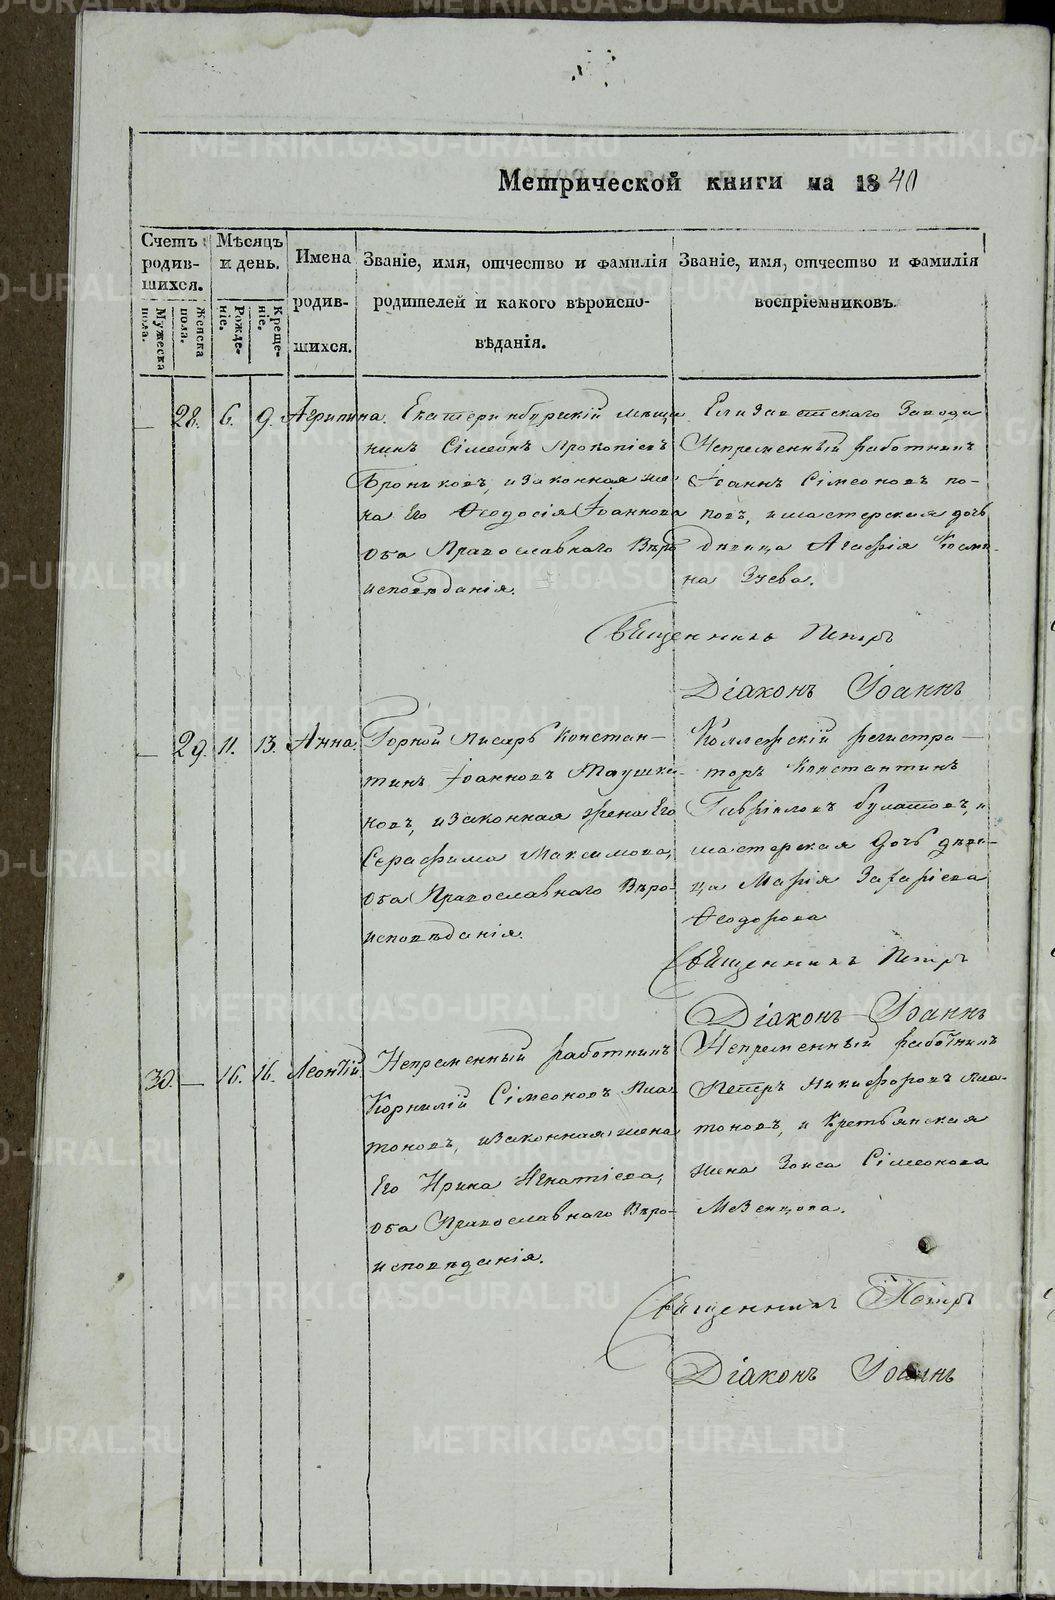 Метрической книги на 1840
Счетъ родившихся.
Мѣсяцъ и день.
Имена родившихся.
Званіе, имя, отчество и фамилія родителей и какого вѣроисповѣданія.
Званіе, имя, отчество и фамилія воспріемниковъ.
Мужеска пола.
Женска пола.
Рожденіе.
Крещеніе.
— 28. 6. 9. Агрипина.
Екатеринбургскій мѣща
нинъ Сімеонъ Прокопіевъ
Брониковъ, и законная же-
на Его Ѳеодосія Іоаннова
оба Православнаго Вѣро
исповѣданія.
Елизаветскаго Завода
Непременный работникъ
Іоаннъ Сімеоновъ по-
повъ, и мастерская дочь
дѣвица Агафія Козми-
на Зуева.
Священникъ Петръ
Діаконъ Іоаннъ
— 29. 11. 13. Анна.
Горной Писарь Констан-
тинъ Іоанновъ
ковъ, и законная жена Его
Серафима Максимова,
оба Православнаго Вѣро-
исповѣданія.
Коллежскій регистра-
торъ Константинъ
Гавріиловъ булатовъ, и
мастерская дочь дѣви-
ца Марія Захаріева
Ѳеодорова
Священникъ Петръ
Діаконъ Іоаннъ
30. — 16. 16. Леонтій.
Непременный работникъ
Корнилій Сімеоновъ Пла-
тоновъ, и законная жена
Его Ирина Игнатіева,
оба Православнаго Вѣро-
исповѣданія.
Непременный работникъ
Петръ Никифоровъ пла-
тоновъ, и Крестьянская
жена Сімеонова
Мезенцова.
Священникъ Петръ
Діаконъ Іоаннъ
METRIKI.GASO-URAL.RU